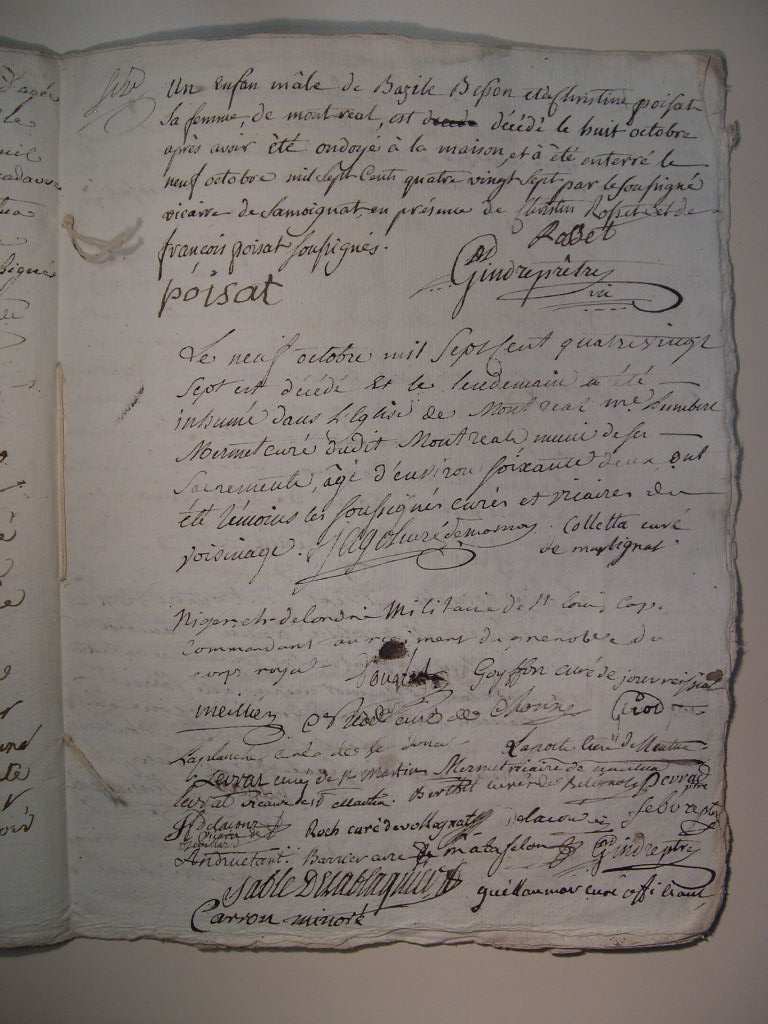 Un enfan mâle de Bazile Besson et de Christine poisat
sa femme, de montreal, est décédé le huit octobre
après avoir été ondoyé à la maison, et à été enterré le
neuf octobre mil sept cents quatre vingt sept par le soussigné
vicaire de Samoignat, en présence de Christin Rosset et de
françois poisat soussignés.
Rosset
poisat
Gindre prêtre
vic
Le neuf octobre mil sept cent quatre vingt
sept est décédé et le lendemain a été
inhumé dans l'Eglise de Montreal mre humbert
Mermet curé dudit Montreal muni de ses
sacrements, âgé d'environ soixante deux, ont
été témoins les soussignés curés et vicaires du
voisinage. curé de
Colletta curé
de martignat
militaire de St louis, Cap.
Commandant au regiment de grenoble du
corps royal
Goyffon curé de jouvreissiat
meillier
curé de
Girod
Laporte curé de
Levrat curé de St Martin Mermet vicaire de
levrat vicaire de St Martin. Berthet curé de
Delacour
Roch curé de volognat
Andruetant. Barrier curé de matafelon
Gindre ptre
guillaumot curé officiant
Carron minoré